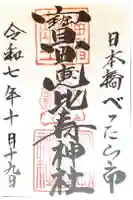 日本橋べったら市
寶田恵比寿神社
令和七年十月十九日